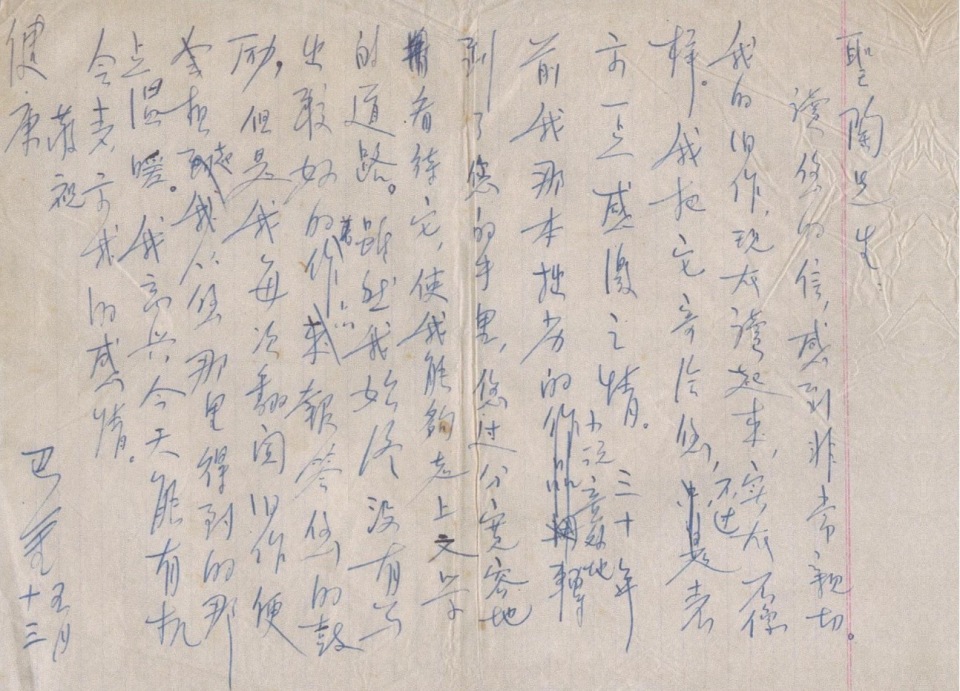 聖陶先生
读您的信，感到非常亲切。
我的旧作，现在读起来，实在不像
样。我把它寄给您，不过是表
示一点感激之情。三十年
前我那本拙劣的小说意外地
到了您的手里，您过分宽容地
看待它，使我能够走上文学
的道路。虽然我始终没有写
出较好的作品来报答您的鼓
励，但是我每次翻阅旧作便
会想起我从您那里得到的那
点温暖。我高兴今天能有机
会表示我的感情。
敬祝
健康
巴金
十三